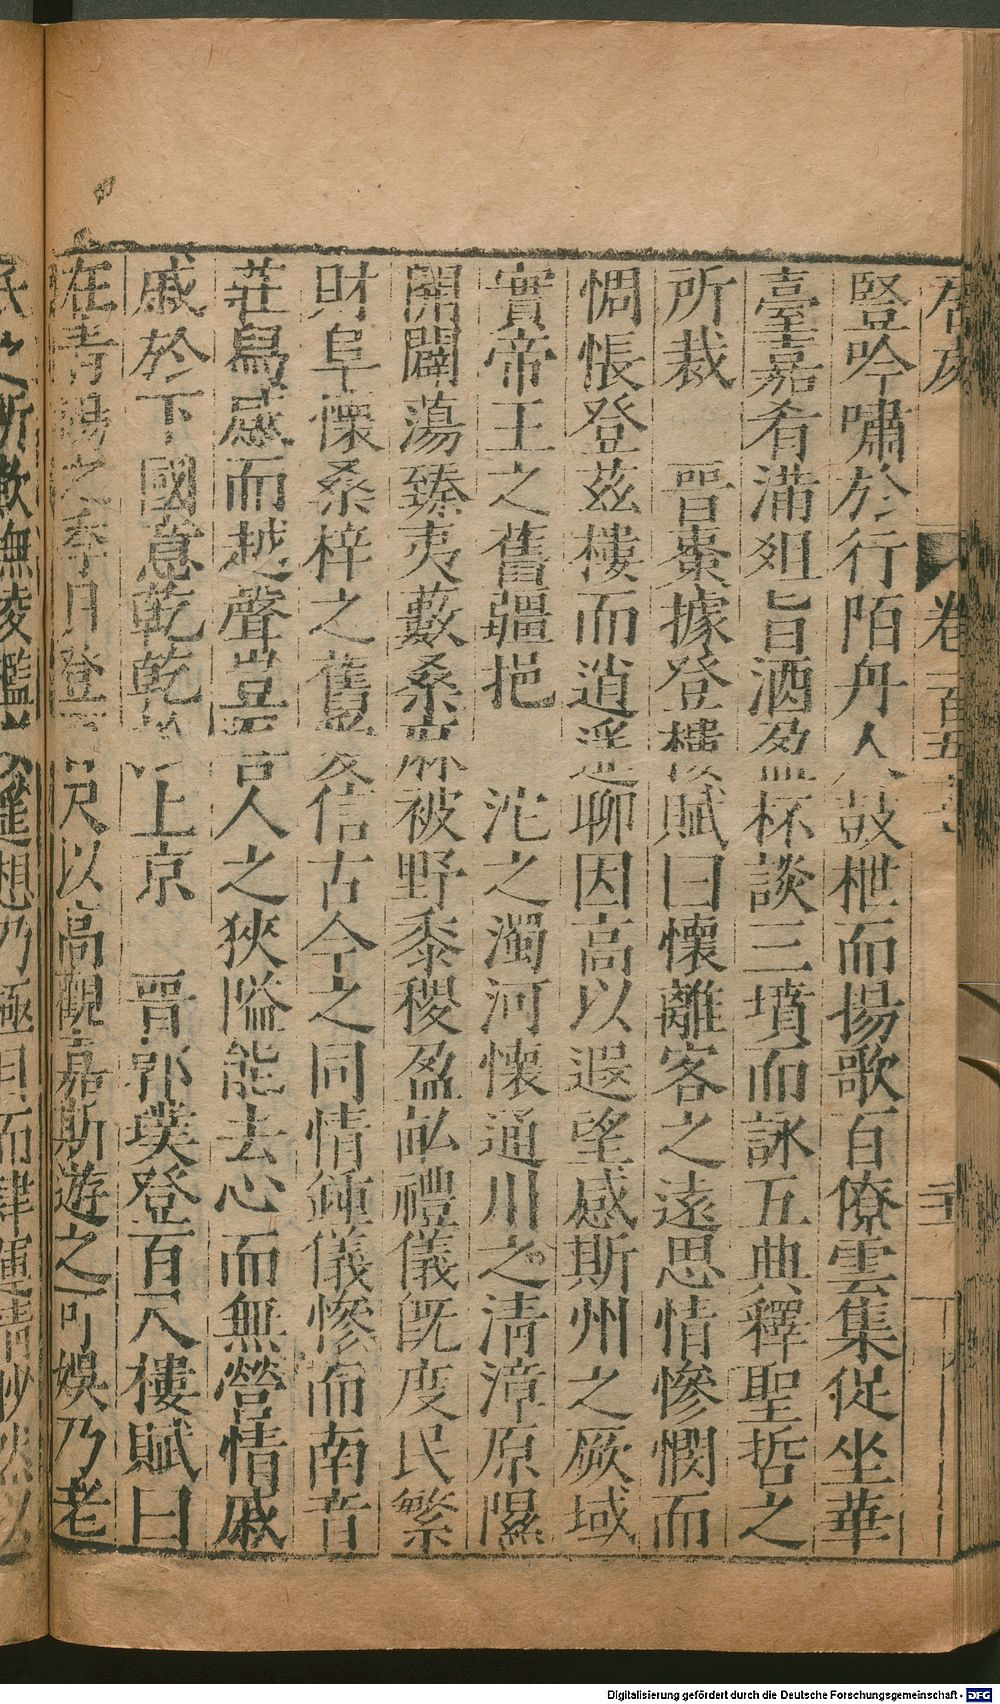 居處 卷一百五 
竪吟嘯於行陌舟人鼓枻而揚歌百僚雲集促坐華
臺嘉肴滿俎旨酒盈杯談三墳而詠五典釋聖哲之
所裁 晉棗據登樓賦曰懷離客之遠思情慘憫而
惆悵登茲樓而逍遥聊因高以遐望感斯州之厥域
實帝王之舊疆挹 沱之濁河懷通川之清漳原隰
開闢蕩臻夷藪桑麻被野黍稷盈畝禮儀既度民繁
財阜懷桑梓之舊愛信古今之同情鍾儀慘而南音
莊舄感而越聲豈吾人之狹隘能去心而無營情戚
戚於下國意乾乾於上京 晉郭璞登百尺樓賦曰
在青陽之季月登百尺以高觀嘉斯遊之可娛乃老
氏之所歎無陵 想乃極目而肆運情眇然以
Digitalisierung gefördert durch die Deutsche Forschungsgemeinschaft - DFG